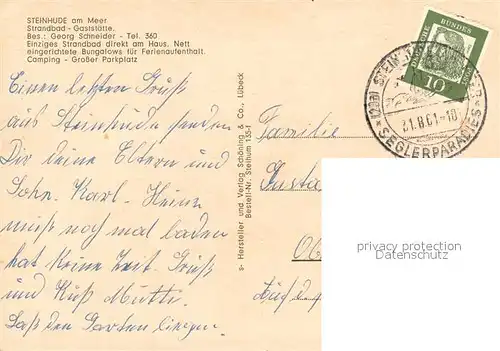 STEINHUDE am Meer
Strandbad - Gaststätte.
Bes.: Georg Schneider - Tel. 360
Einziges Strandbad direkt am Haus. Nett
eingerichtete Bungalows für Ferienaufenthalt.
Camping - Großer Parkplatz
Einen letzten Gruß
aus Steinhude senden
Dir deine Eltern und
Sohn. Karl-Heinz
muß noch mal baden
hat keine Zeit. Gruß
und Kuß Mutti.
Laß den Garten liegen.
s- Hersteller und Verlag Schöning & Co., Lübeck
Bestell-Nr. Steihum 135-1
DEUTSCHE BUNDESPOST
10
31.8.61-18
SEGLERPARADIES
Familie
Gusta
privacy protection
Verification Service